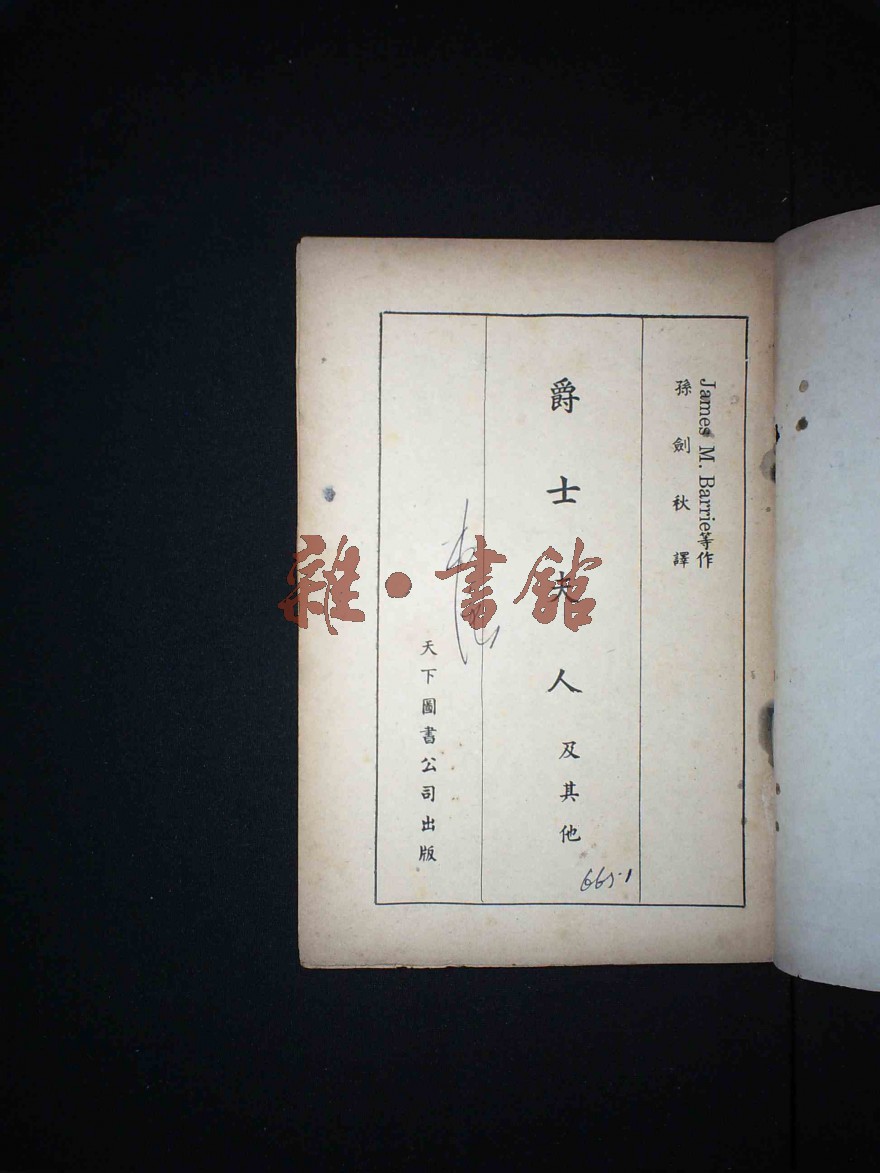 James M. Barrie等作
孫劍秋譯
爵士夫人及其他
665.1
天下圖書公司出版
雜·書館